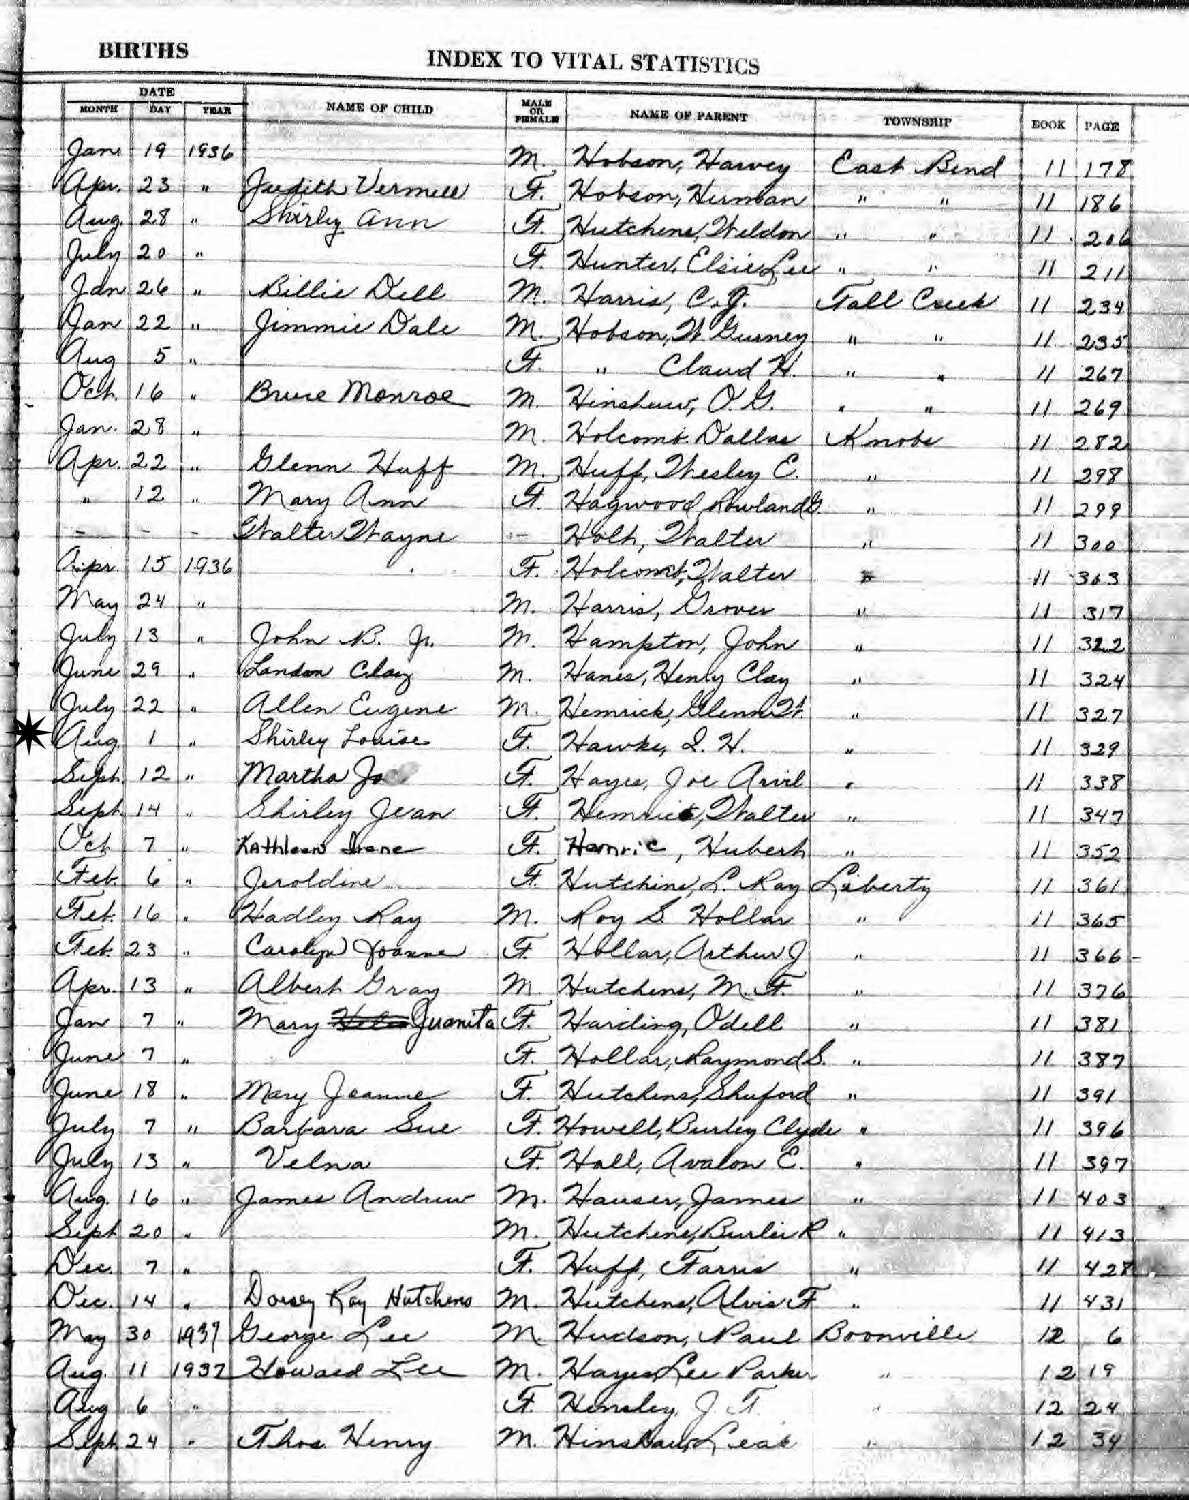 BIRTHS
INDEX TO VITAL STATISTICS
DATE
MONTH DAY YEAR NAME OF CHILD MALE OR FEMALE NAME OF PARENT TOWNSHIP BOOK PAGE
Jan 19 1936 M. Hobson, Harvey East Bend 11 178
Apr. 23 " Judith Vermell F. Hobson, Herman " " 11 186
Aug. 28 " Shirly Ann F. Hutchens, Weldon " " 11 206
July 20 " F. Hunter, Elsie Lee " " 11 211
Jan 26 " Billie Dell M. Harris, C. J. Fall Creek 11 234
Jan 22 " Jimmie Dale M. Hobson, W Gurney " " 11 235
Aug 5 " F. " Claud H. " " 11 267
Oct. 16 " Bruce Monroe M. Hinshaw, O. G. " " 11 269
Jan. 28 " M. Holcomb Dallas Knobs 11 282
Apr. 22 " Glenn Huff M. Huff, Wesley E. " 11 298
" 12 " Mary Ann F. Hagwood, Rowland G. " 11 299
- - - Walter Wayne - Holt, Walter " 11 300
Apr. 15 1936 F. Holcomb, Walter " 11 303
May 24 " M. Harris, Grover " 11 317
July 13 " John B. Jr. M. Hampton, John " 11 322
June 29 " Landon Clay M. Hanes, Henry Clay " 11 324
July 22 " Allen Eugene M. Hemrick, Glenn W. " 11 327
Aug. 1 " Shirley Louise F. Hawks, I. H. " 11 329
Sept. 12 " Martha Jo F. Hayes, Joe Arvil " 11 338
Sept. 14 " Shirley Jean F. Hemric, Walter " 11 347
Oct 7 " Kathleen Irene F. Hemric, Hubert " 11 352
Feb. 6 " Jeroldine F. Hutchins, L. Ray Liberty 11 361
Feb. 16 " Hadley Ray M. Roy S. Hollar " 11 365
Feb. 23 " Carolyn Joanne F. Hollar, Arthur J " 11 366
Apr. 13 " Albert Gray M. Hutchens, M. F. " 11 376
Jan 7 " Mary Helen Juanita F. Harding, Odell " 11 381
June 7 " F. Hollar, Raymond S. " 11 387
June 18 " Mary Jeanne F. Hutchens, Shuford " 11 391
July 7 " Barbara Sue F. Howell, Burley Clyde " 11 396
July 13 " Velna F. Hall, Avalon E. " 11 397
Aug. 16 " James Andrew M. Hauser, James " 11 403
Sept 20 " M. Hutchens, Burlie R " 11 413
Dec. 7 " F. Huff, Farris " 11 428
Dec. 14 " Dorsey Ray Hutchens M. Hutchens, Alvis F. " 11 431
May 30 1937 George Lee M Hudson, Paul Boonville 12 6
Aug. 11 1937 Howard Lee M. Hayes, Lee Parker " 12 19
Aug 6 " F. Hensley J. T. " 12 24
Sept. 24 " Thos Henry M. Hinshaw, Leak " 12 34